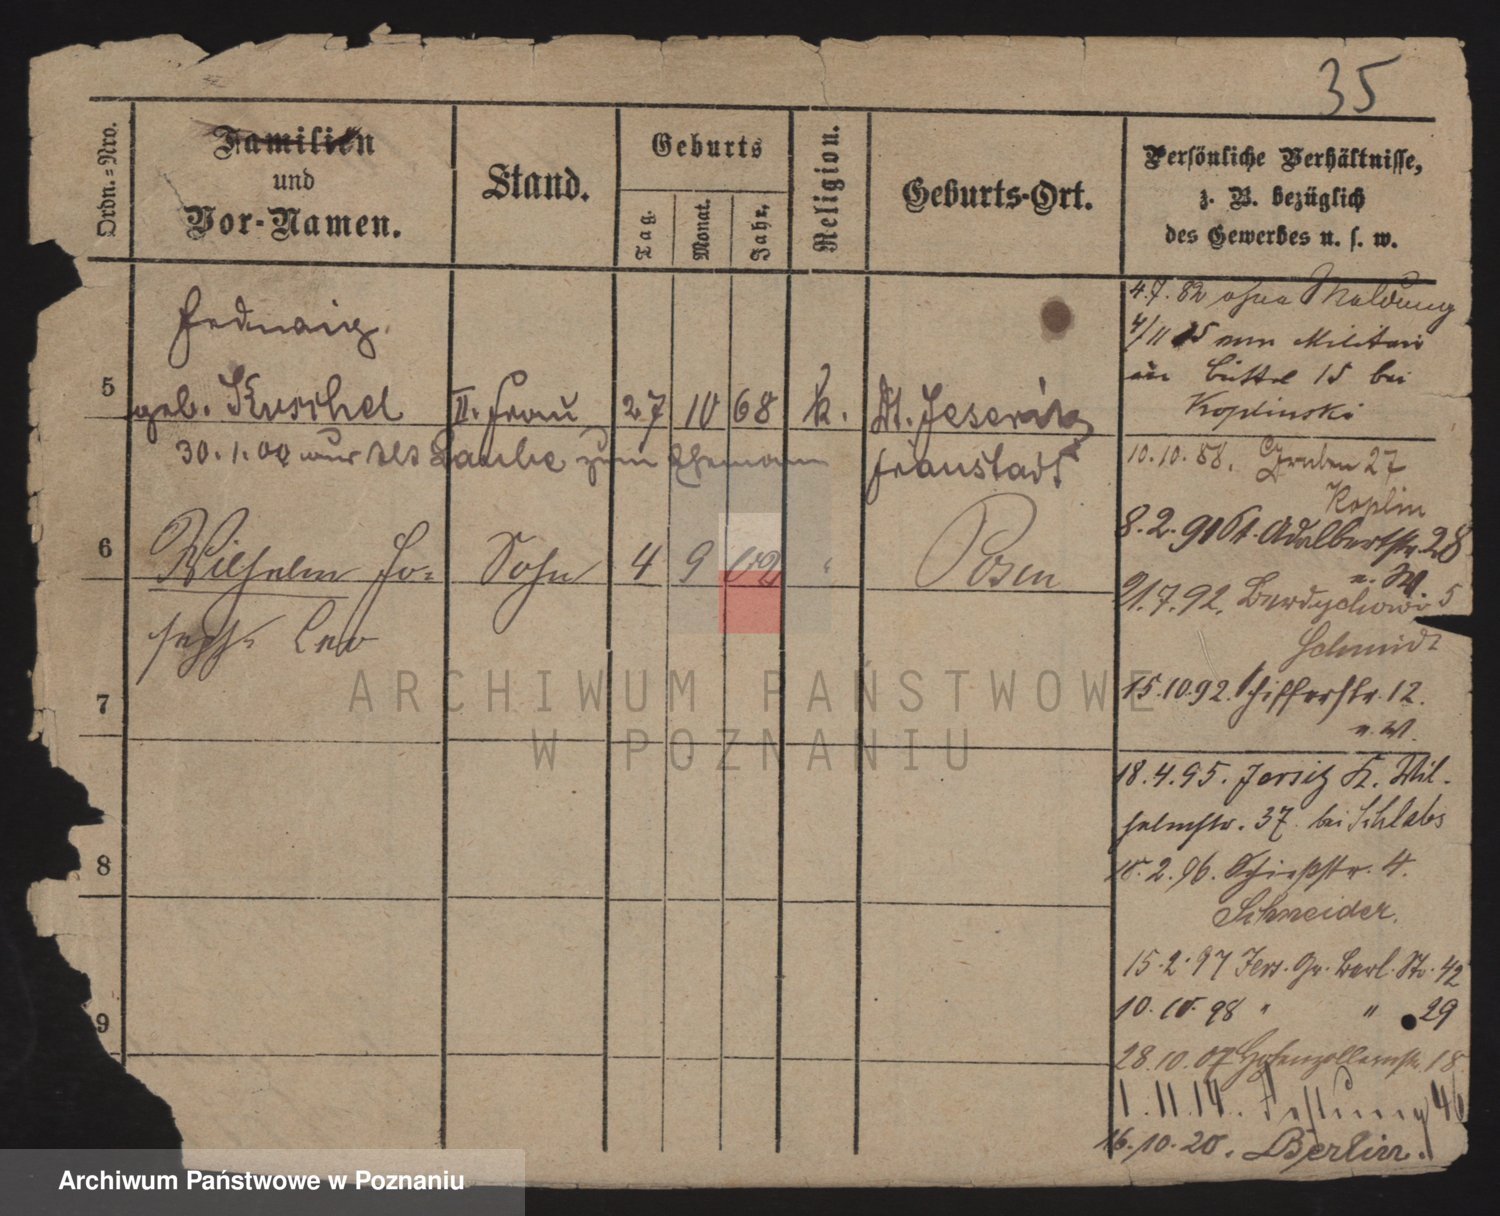 35
Ordn.=Nro.
Familien
und
Vor-Namen.
Stand.
Geburts
Tag.
Monat.
Jahr.
Religion.
Geburts-Ort.
Persönliche Verhältnisse,
z. B. bezüglich
des Gewerbes u. s. w.
5
Hedwig
geb. Kuschel
II. Frau
27
10
68
k.
Dt. Jeseritz
Fraustadt
30. 1. 00 zum Ehemann
6
Wilhelm Jo=
seph Leo
Sohn
4
9
02
"
Posen
7
8
9
4.7.82 ohne Meldung
4/11 85 vom Militair
Büttel 15 bei
Koplinski
10.10.88. Graben 27
Koplin
8.2.91 St. Adalbertstr. 28
u. W.
21.7.92. Berdychowo 5
Schmidt
15.10.92. Schifferstr. 12.
u. W.
18.4.95. Jersitz K. Wil-
helmstr. 37. bei Schlabs
10.2.96. Schießstr. 4.
Schneider.
15.2.97 Jers. Gr. Berl. Str. 42
10.10.98 " " 29
28.10.07 Hohenzollernstr. 18
1.11.14. Festung 46
16.10.20. Berlin.
ARCHIWUM PAŃSTWOWE
W POZNANIU
Archiwum Państwowe w Poznaniu